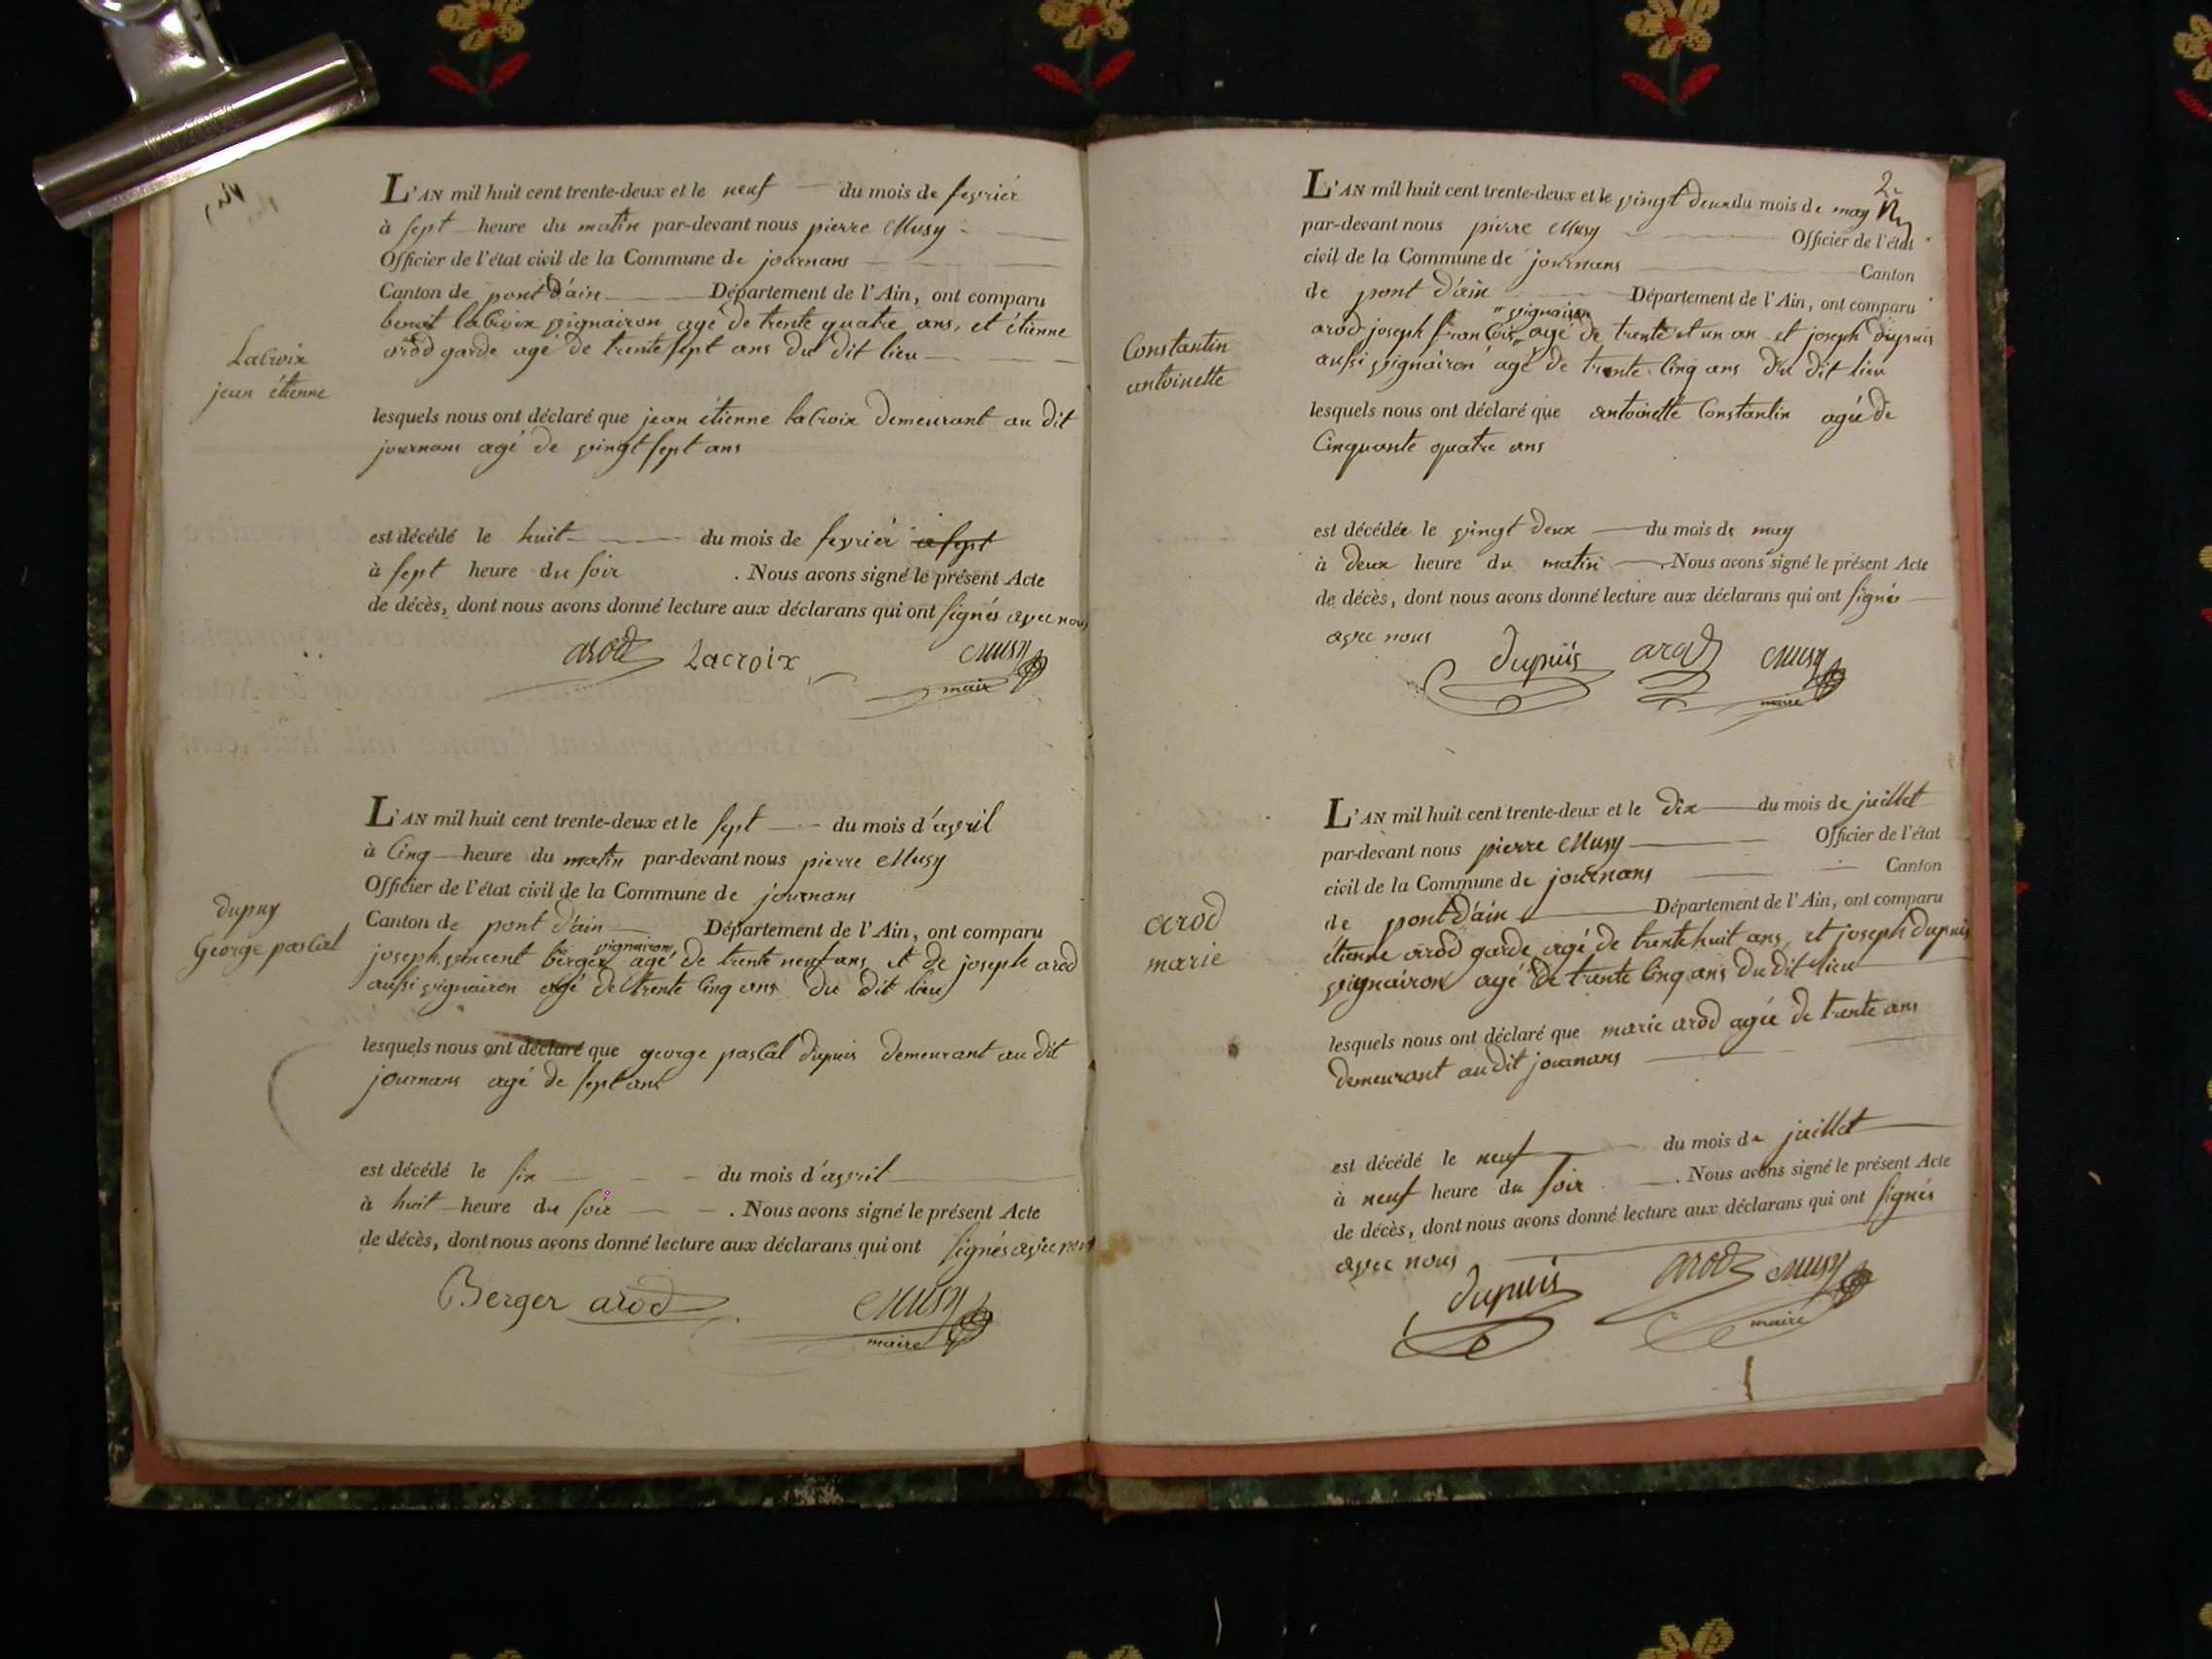 L'AN mil huit cent trente-deux et le neuf du mois de fevrier
à sept heure du matin par-devant nous pierre Musy
Officier de l'état civil de la Commune de journans
Canton de pont d'ain Département de l'Ain, ont comparu
benoit laCroix vignairon agé de trente quatre ans, et étienne
arod garde agé de trente sept ans du dit lieu
LaCroix
jean étienne
lesquels nous ont déclaré que jean étienne laCroix demeurant au dit
journans agé de vingt sept ans
est décédé le huit du mois de fevrier a sept
à sept heure du soir . Nous avons signé le présent Acte
de décès, dont nous avons donné lecture aux déclarans qui ont signés avec nous
arod Lacroix Musy
maire
L'AN mil huit cent trente-deux et le sept du mois d'avril
à Cinq heure du matin par-devant nous pierre Musy
Officier de l'état civil de la Commune de journans
Canton de pont d'ain Département de l'Ain, ont comparu
dupuy
George pasCal
vignairon
joseph vincent berger agé de trente neuf ans et de joseph arod
aussi vignairon agé de trente Cinq ans du dit lieu
lesquels nous ont déclaré que george pasCal dupuis demeurant au dit
journans agé de sept ans
est décédé le six du mois d'avril
à huit heure du soir . Nous avons signé le présent Acte
de décès, dont nous avons donné lecture aux déclarans qui ont signés avec nous
Berger arod Musy
maire
2
L'AN mil huit cent trente-deux et le vingt deux du mois de may
par-devant nous pierre Musy Officier de l'état
civil de la Commune de journans Canton
de pont d'ain Département de l'Ain, ont comparu
" vignairon
arod joseph franCois " agé de trente et un an et joseph dupuis
aussi vignairon agé de trente Cinq ans du dit lieu
Constantin
antoinette
lesquels nous ont déclaré que antoinette Constantin agée de
Cinquante quatre ans
est décédée le vingt deux du mois de may
à deux heure du matin . Nous avons signé le présent Acte
de décès, dont nous avons donné lecture aux déclarans qui ont signés
avec nous
dupuis arod Musy
maire
L'AN mil huit cent trente-deux et le dix du mois de juillet
par-devant nous pierre Musy Officier de l'état
civil de la Commune de journans Canton
de pont d'ain Département de l'Ain, ont comparu
arod
marie
étienne arod garde agé de trente huit ans, et joseph dupuis
vignairon agé de trente Cinq ans du dit lieu
lesquels nous ont déclaré que marie arod agée de trente ans
demeurant au dit journans
est décédé le neuf du mois de juillet
à neuf heure du soir . Nous avons signé le présent Acte
de décès, dont nous avons donné lecture aux déclarans qui ont signés
avec nous
dupuis arod Musy
maire